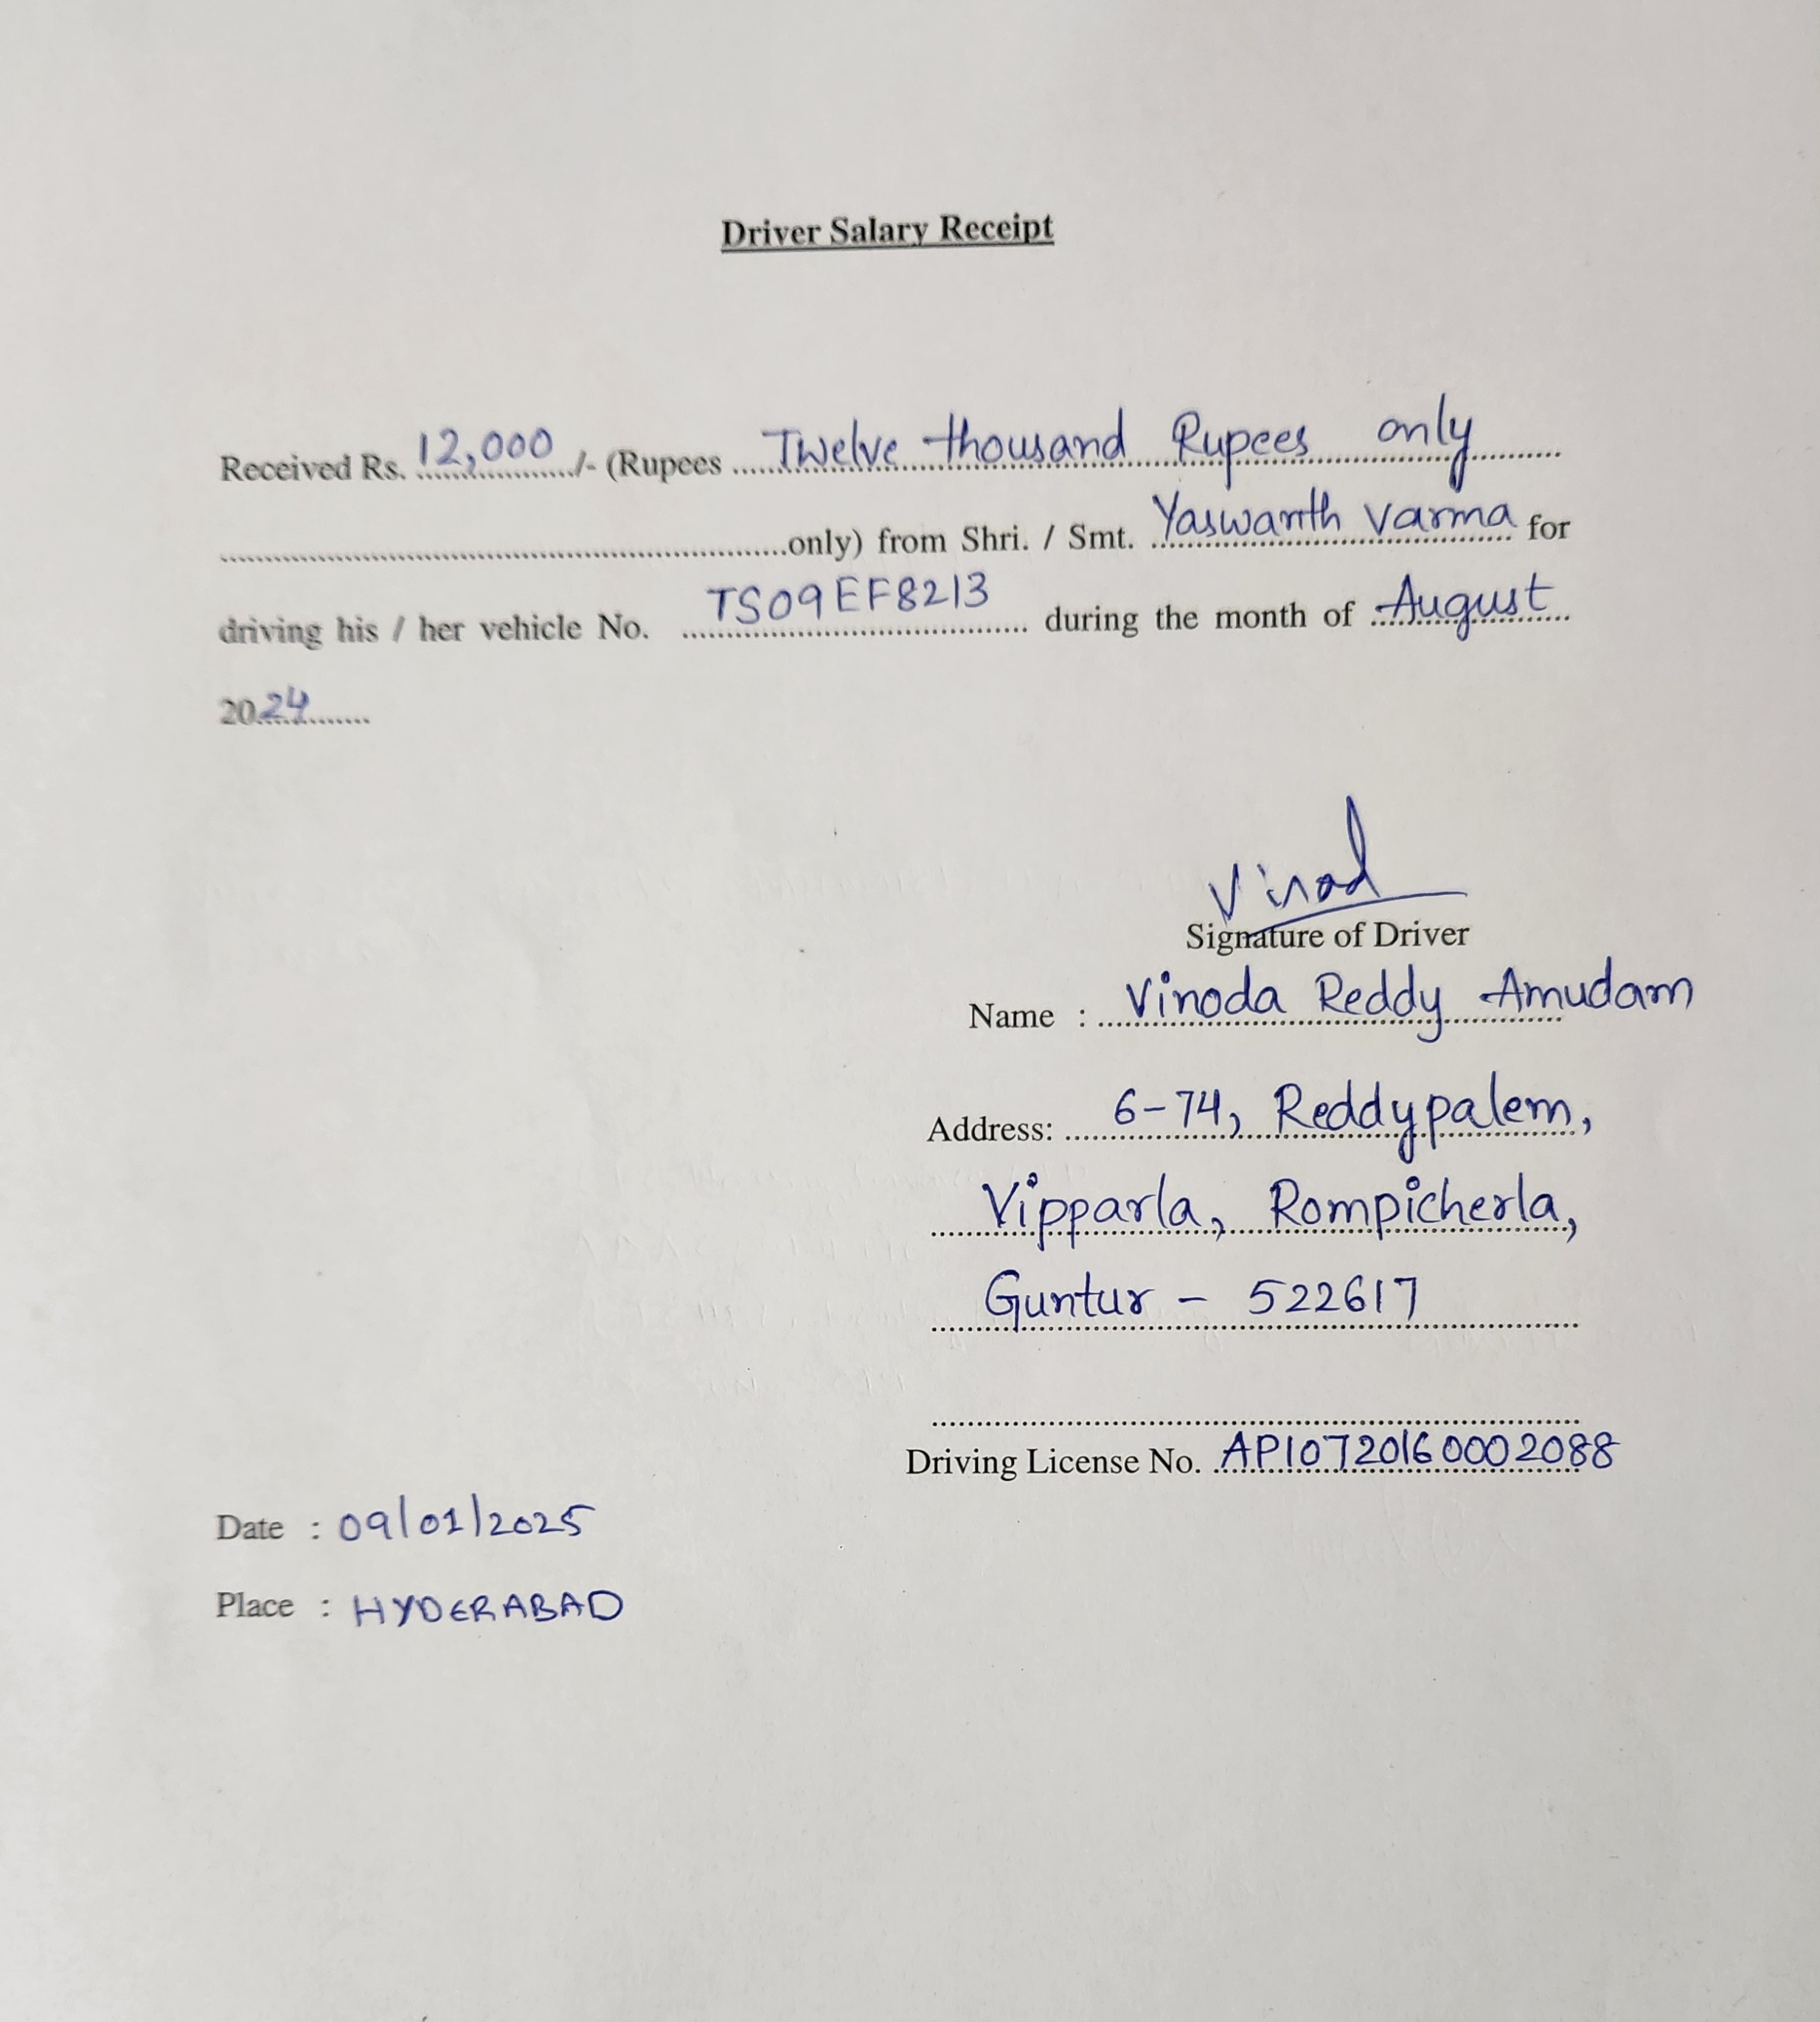 Driver Salary Receipt
Received Rs. 12,000 /- (Rupees Twelve thousand Rupees only
only) from Shri. / Smt. Yaswanth Varma for
driving his / her vehicle No. TS09EF8213 during the month of August
2024
Vinod
Signature of Driver
Name : Vinoda Reddy Amudam
Address: 6-74, Reddypalem,
Vipparla, Rompicherla,
Guntur - 522617
Driving License No. AP10720160002088
Date : 09/01/2025
Place : HYDERABAD